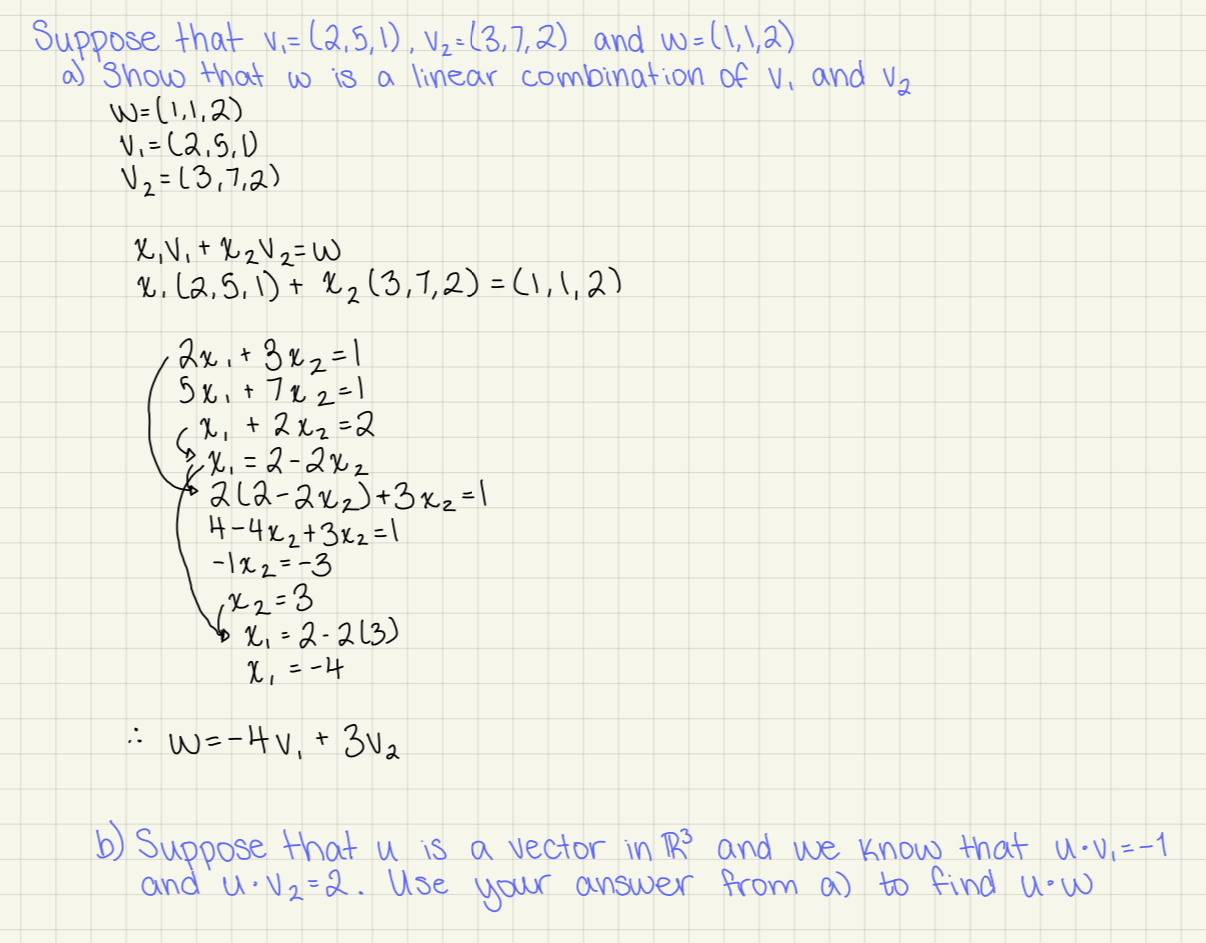 Suppose that v₁=(2,5,1), v₂=(3,7,2) and w=(1,1,2)
a) Show that w is a linear combination of v₁ and v₂
w=(1,1,2)
v₁=(2,5,1)
v₂=(3,7,2)
x₁v₁+x₂v₂=w
x₁(2,5,1)+ x₂(3,7,2)=(1,1,2)
2x₁+3x₂=1
5x₁+7x₂=1
x₁+2x₂=2
x₁=2-2x₂
2(2-2x₂)+3x₂=1
4-4x₂+3x₂=1
-1x₂=-3
x₂=3
x₁=2-2(3)
x₁=-4
∴ w=-4v₁+3v₂
b) Suppose that u is a vector in ℝ³ and we know that u·v₁=-1
and u·v₂=2. Use your answer from a) to find u·w